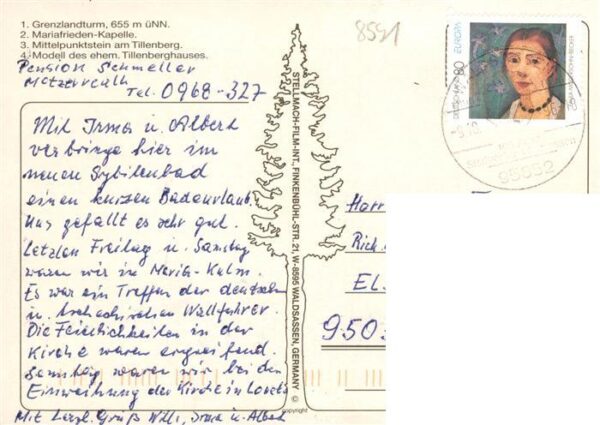 1. Grenzlandturm, 655 m üNN.
2. Mariafrieden-Kapelle.
3. Mittelpunktstein am Tillenberg.
4. Modell des ehem. Tillenberghauses.
Pension Schmeller
Tel. 0968-327
Mit Irma u. Albert
verbringe hier im
neuen Sybillenbad
einen kurzen Badeurlaub.
Uns gefällt es sehr gut.
Letzten Freitag u. Samstag
waren wir in Maria-Kulm.
Es war ein Treffen der deutschen
u. tschechischen Wallfahrer.
Die Feierlichkeiten in der
Kirche waren ergreifend.
Samstag waren wir bei der
Einweihung der Kirche in Loreto
Mit herzl. Grüß Willi, Irma u. Albert
STELLMACH-FILM-INT., FINKENBÜHL-STR. 21, W-8595 WALDSASSEN, GERMANY
©
copyright
8591
DEUTSCHLAND 80 EUROPA
95666
Rich.
El